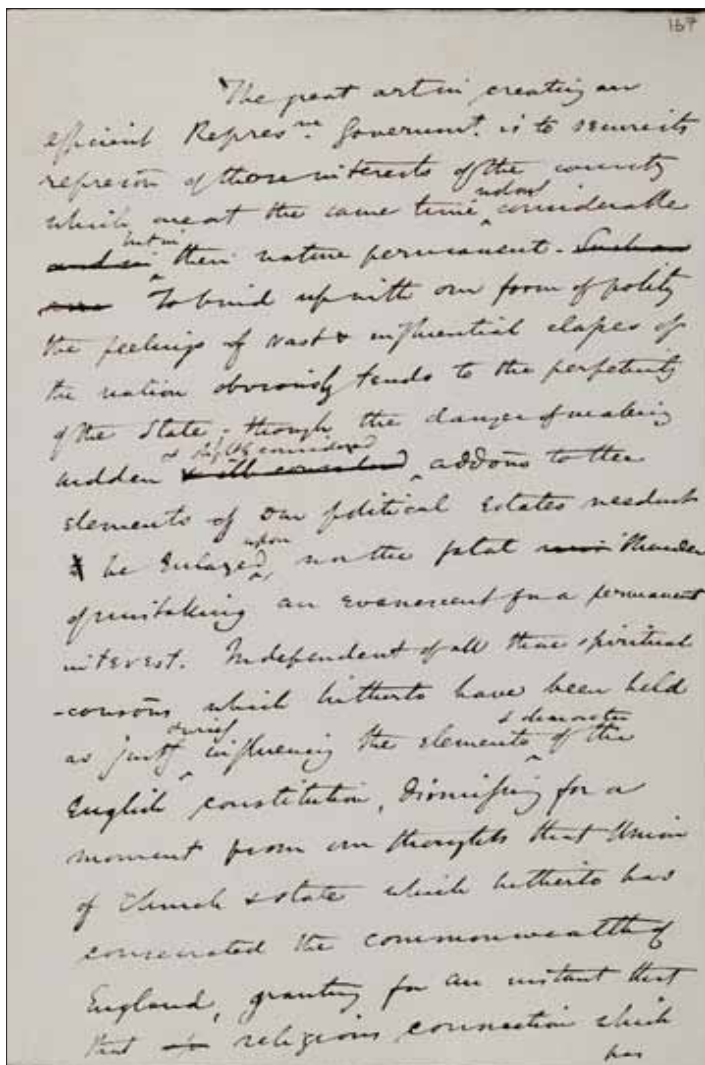 167
The great art in creating an
efficient Repres^ve. Government. is to secure its
represon of those interests of the country
which are at the same time not only considerable
and in but in their nature permanent - Such an
To bind up with our form of polity
the feelings of vast & influential classes of
the nation obviously tends to the perpetuity
of the State - though the danger of making
sudden & slightly considered & ill considered addons to the
elements of our political Estates need not
be Enlarged upon, nor the fatal blunder
of mistaking an Evanescent for a permanent
interest. Independent of all those spiritual
-consons which hitherto have been held
as justly influencing the elements & character of the
English constitution, dismissing for a
moment from our thoughts that Union
of Church & State which hitherto has
consecrated the commonwealth of
England, granting for an instant that
that religious connection which
has